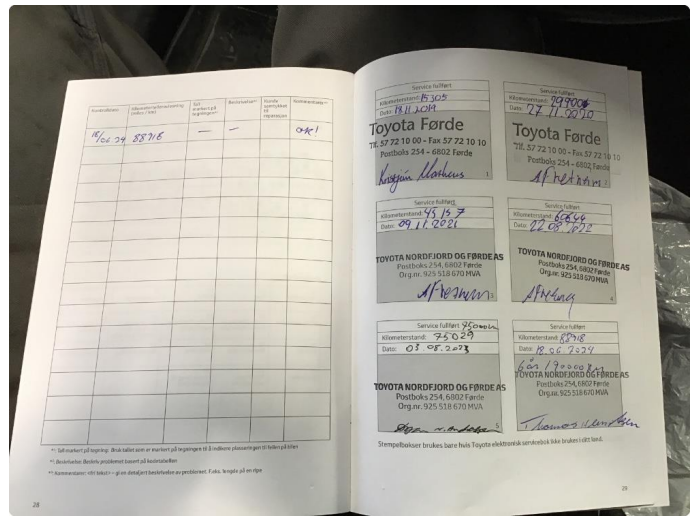 Kontrolldato
Tall markert på tegningen*¹
Beskrivelse*²
Kunde samtykket til reparasjon
Kommentar*³
18/06.24 88918 — — OK!
*¹: Tall markert på tegning: Bruk tallet som er markert på tegningen til å indikere plasseringen til feilen på bilen
*²: Beskrivelse: Beskriv problemet basert på kodetabellen
28
Service fullført
Kilometerstand: 15305
Dato: 18.11.2019
Toyota Førde
Tlf. 57 72 10 00 - Fax 57 72 10 10
Postboks 254 - 6802 Førde
1
Service fullført
Kilometerstand:
Dato: 27.11.2020
Toyota Førde
Tlf. 57 72 10 00 - Fax 57 72 10 10
Postboks 254 - 6802 Førde
Service fullført
Kilometerstand: 45157
Dato: 09.11.2021
TOYOTA NORDFJORD OG FØRDE AS
Postboks 254, 6802 Førde
Org.nr. 925 518 670 MVA
3
Service fullført
Kilometerstand: 60644
Dato: 22.08.2022
TOYOTA NORDFJORD OG FØRDE AS
Postboks 254, 6802 Førde
Org.nr. 925 518 670 MVA
4
Service fullført
Kilometerstand: 75029
Dato: 03.08.2023
TOYOTA NORDFJORD OG FØRDE AS
Postboks 254, 6802 Førde
Org.nr. 925 518 670 MVA
5
Service fullført
Kilometerstand: 88918
Dato: 18.06.2024
6 år / 90000 km
TOYOTA NORDFJORD OG FØRDE AS
Postboks 254, 6802 Førde
Org.nr. 925 518 670 MVA
Thomas
Stempelbokser brukes bare hvis Toyota elektronisk servicebok ikke brukes i ditt land.
29